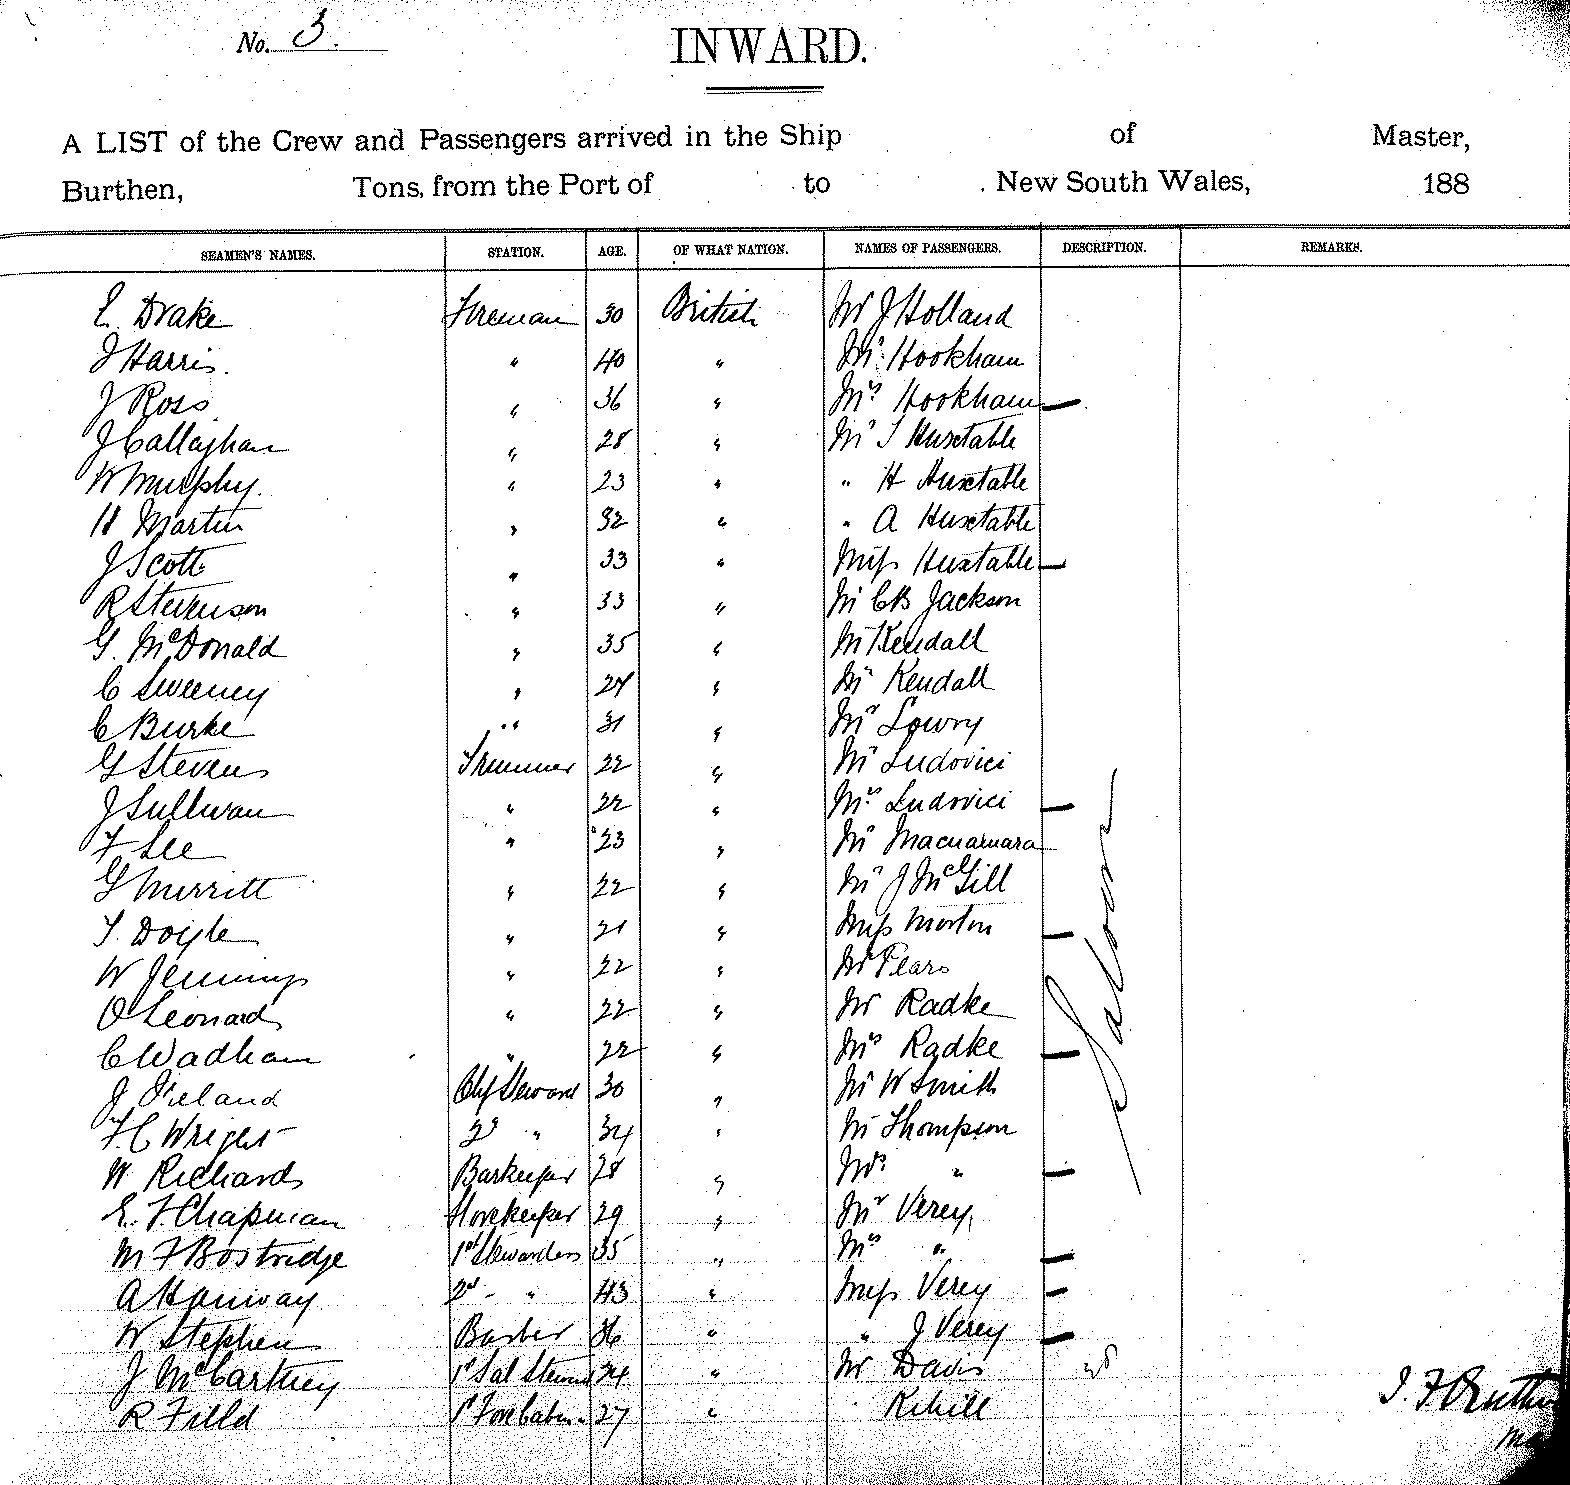 No. 3.
INWARD.
A LIST of the Crew and Passengers arrived in the Ship of Master,
Burthen, Tons, from the Port of to New South Wales, 188
SEAMEN'S NAMES. STATION. AGE. OF WHAT NATION. NAMES OF PASSENGERS. DESCRIPTION. REMARKS.
E. Drake Fireman 30 British Mr J Holland
J Harris. " 40 " Mr. Hookham
J Ross " 36 " Mrs Hookham —
J Callaghan " 28 " Mr J Huxtable
W Murphy. " 23 " " H Huxtable
H Martin " 32 " " A Huxtable
J Scott " 33 " Miss Huxtable —
R Stevenson " 33 " Mr CB Jackson
G. McDonald " 35 " Mr Kendall
C Sweeney " 24 " Mr Kendall
C Burke " 31 " Mr Lowry
G Stevens Trimmer 22 " Mr Ludovici
J Sullivan " 22 " Mrs Ludovici —
F Lee " 23 " Mr Macnamara
G Merritt " 22 " Mr J McGill
T. Doyle " 21 " Miss Morton —
W Jennings " 22 " Mr Pears
O Leonard " 22 " Mr Radke
C Wadham " 22 " Mrs Radke —
J Ireland Chf Steward 30 " Mr W Smith
F. C Wright 2d " 34 " Mr Thompson
W. Richards Barkeeper 28 " Mrs " —
E. F. Chapman Storekeeper 29 " Mr Verey
M F Bostridge 1st Stewardess 35 " Mrs " —
A Hanway 2nd " 43 " Miss Verey —
W Stephen Barber 36 " " J Verey —
J McCartney 1st Sal Steward 34 " Mr Davis
R Field 1st Forecabin 27 " Kihill
Saloon